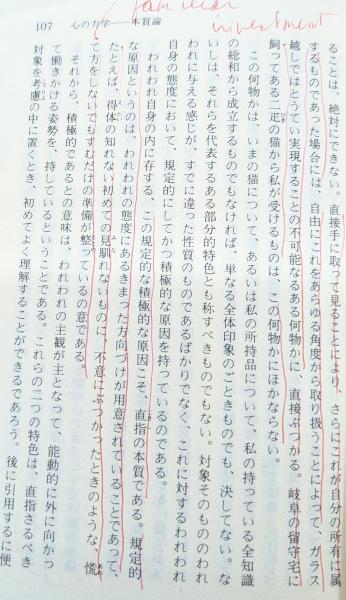 familiar
investment
107　心の力学──本質論
ることは、絶対にできない。直接手に取って見ることにより、さらにこれが自分の所有に属
するものであった場合には、自由にこれをあらゆる角度から取り扱うことによって、ガラス
越しではとうてい実現することの不可能なある何物かに、直接ぶつかる。岐阜の留守宅に
飼ってある二疋の猫から私が受けるものは、この何物かにほかならない。
この何物かは、いまの猫について、あるいは私の所持品について、私の持っている全知識
の総和から成立するものでもなければ、単なる全体印象のごときものでも、決してない。な
いしは、それらを代表するある部分的特色とも称すべきものでもない。対象そのもののわれ
われに与える感じが、すでに違った性質のものであるばかりでなく、これに対するわれわれ
自身の態度において、規定的にしてかつ積極的な原因を持っているのである。
われわれ自身の内に存する、この規定的な積極的な原因こそ、直指の本質である。規定的
な原因というのは、われわれの態度にあるきまった方向づけが用意されていることであって、
たとえば、得体の知れない初めての見馴れないものに、不意にぶつかったときのような、慌
て方をしないでもすむだけの準備が整っているの意である。
それから、積極的であるとの意味は、われわれの主観が主となって、能動的に外に向かっ
て働きかける姿勢を、持しているということである。これらの二つの特色は、直指さるべき
対象を考慮の中に置くとき、初めてよく理解することができるであろう。　後に引用するに便